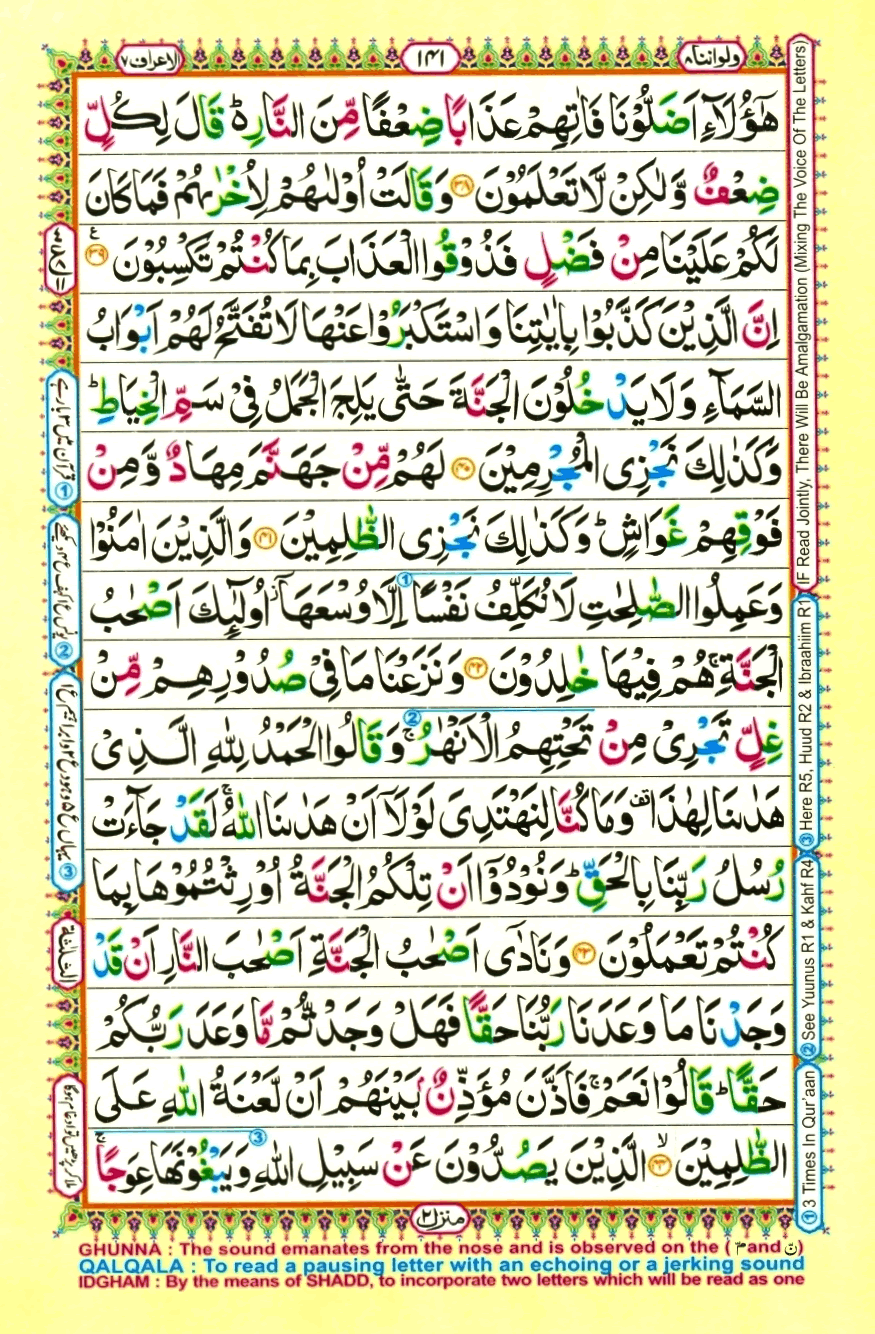 ولواننا ٨
١٤١
الاعراف ٧
هٰۤؤُلَآءِ اَضَلُّوْنَا فَاٰتِهِمْ عَذَابًا ضِعْفًا مِّنَ النَّارِ ؕ۬ قَالَ لِكُلٍّ
ضِعْفٌ وَّلٰكِنْ لَّا تَعْلَمُوْنَ ﴿٣٨﴾ وَقَالَتْ اُوْلٰىهُمْ لِاُخْرٰىهُمْ فَمَا كَانَ
لَكُمْ عَلَيْنَا مِنْ فَضْلٍ فَذُوْقُوا الْعَذَابَ بِمَا كُنْتُمْ تَكْسِبُوْنَ ﴿٣٩﴾
اِنَّ الَّذِيْنَ كَذَّبُوْا بِاٰيٰتِنَا وَاسْتَكْبَرُوْا عَنْهَا لَا تُفَتَّحُ لَهُمْ اَبْوَابُ
السَّمَآءِ وَلَا يَدْخُلُوْنَ الْجَنَّةَ حَتّٰى يَلِجَ الْجَمَلُ فِيْ سَمِّ الْخِيَاطِ ؕ
وَكَذٰلِكَ نَجْزِى الْمُجْرِمِيْنَ ﴿٤٠﴾ لَهُمْ مِّنْ جَهَنَّمَ مِهَادٌ وَّمِنْ
فَوْقِهِمْ غَوَاشٍ ؕ وَكَذٰلِكَ نَجْزِى الظّٰلِمِيْنَ ﴿٤١﴾ وَالَّذِيْنَ اٰمَنُوْا
وَعَمِلُوا الصّٰلِحٰتِ لَا نُكَلِّفُ نَفْسًا اِلَّا وُسْعَهَاۤ ؗ اُولٰٓئِكَ اَصْحٰبُ
الْجَنَّةِ ۚ هُمْ فِيْهَا خٰلِدُوْنَ ﴿٤٢﴾ وَنَزَعْنَا مَا فِيْ صُدُوْرِهِمْ مِّنْ
غِلٍّ تَجْرِيْ مِنْ تَحْتِهِمُ الْاَنْهٰرُ ۚ وَقَالُوا الْحَمْدُ لِلّٰهِ الَّذِيْ
هَدٰىنَا لِهٰذَا ۟ وَمَا كُنَّا لِنَهْتَدِيَ لَوْلَاۤ اَنْ هَدٰىنَا اللّٰهُ ۚ لَقَدْ جَآءَتْ
رُسُلُ رَبِّنَا بِالْحَقِّ ؕ وَنُوْدُوْۤا اَنْ تِلْكُمُ الْجَنَّةُ اُوْرِثْتُمُوْهَا بِمَا
كُنْتُمْ تَعْمَلُوْنَ ﴿٤٣﴾ وَنَادٰۤى اَصْحٰبُ الْجَنَّةِ اَصْحٰبَ النَّارِ اَنْ قَدْ
وَجَدْنَا مَا وَعَدَنَا رَبُّنَا حَقًّا فَهَلْ وَجَدْتُّمْ مَّا وَعَدَ رَبُّكُمْ
حَقًّا ؕ قَالُوْا نَعَمْ ۚ فَاَذَّنَ مُؤَذِّنٌۢ بَيْنَهُمْ اَنْ لَّعْنَةُ اللّٰهِ عَلَى
الظّٰلِمِيْنَ ﴿٤٤﴾ الَّذِيْنَ يَصُدُّوْنَ عَنْ سَبِيْلِ اللّٰهِ وَيَبْغُوْنَهَا عِوَجًا ۚ
منزل ٢
الثلثة
IF Read Jointly, There Will Be Amalgamation (Mixing The Voice Of The Letters)
③ Here R5, Huud R2 & Ibraahiim R1
② See Yuunus R1 & Kahf R4
① 3 Times In Qur'aan
GHUNNA : The sound emanates from the nose and is observed on the ( مّ and نّ )
QALQALA : To read a pausing letter with an echoing or a jerking sound
IDGHAM : By the means of SHADD, to incorporate two letters which will be read as one